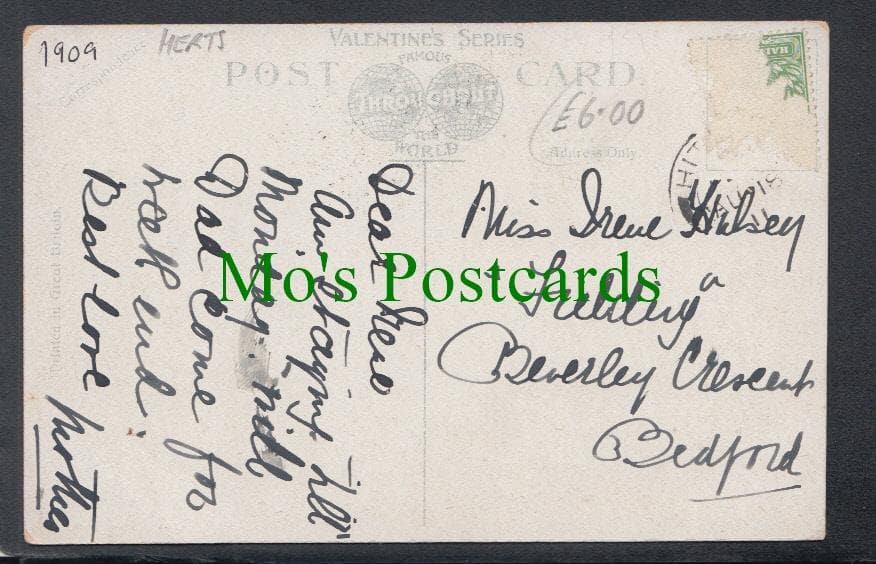 1909
HERTS
Correspondence
VALENTINE'S SERIES
FAMOUS
POST CARD
THROUGHOUT
THE
WORLD
£6.00
Address Only.
HIT
Printed in Great Britain.
Dear Irene
Am staying till
Monday. Will
Dad come for
week end.
Best love
Mother
Miss Irene Hulsey
Beverley Crescent
Bedford
Mo's Postcards